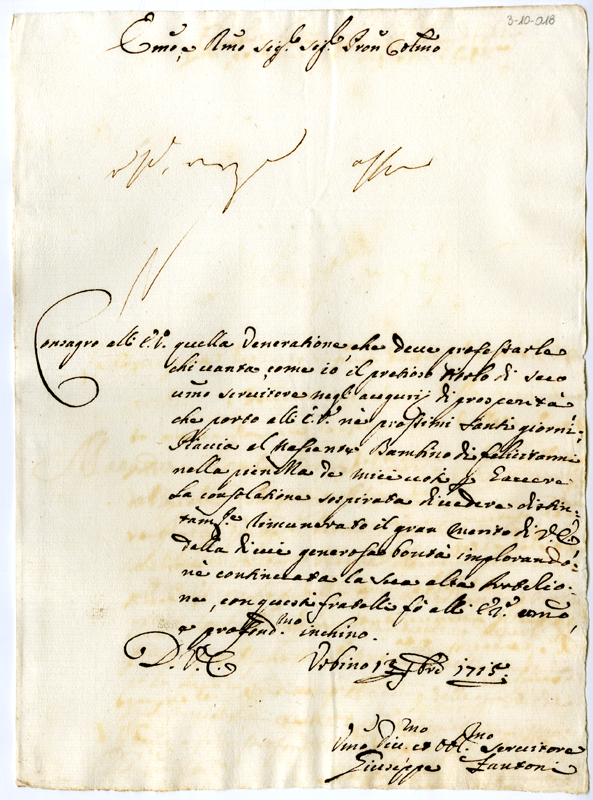 3-10-018
Emo, e Rmo Sigr. Sigr. Pron Colmo
Consagro all' E.V. quella Veneratione, che deve professarle
chi vanta, come io, il pretioso titolo di suo
umo servitore negl' augurij di prosperità
che porto all' E.V. ne' prossimi santi giorni;
Piaccia al Nascente Bambino di felicitarmi
nella pienezza de miei voti, e
la consolatione sospirata di vedere distin-
tamte. rimunerato il gran merito di V.E.
della di cui generosa bontà implorando-
ne continuata la sua alta Protetio-
ne, con questi fratelli fò all' E.V. umo,
e profondmo. inchino.
D. V. E. Urbino 13 Xbre 1715.
Umo Div. et Obblmo servitore
Giuseppe Fantoni